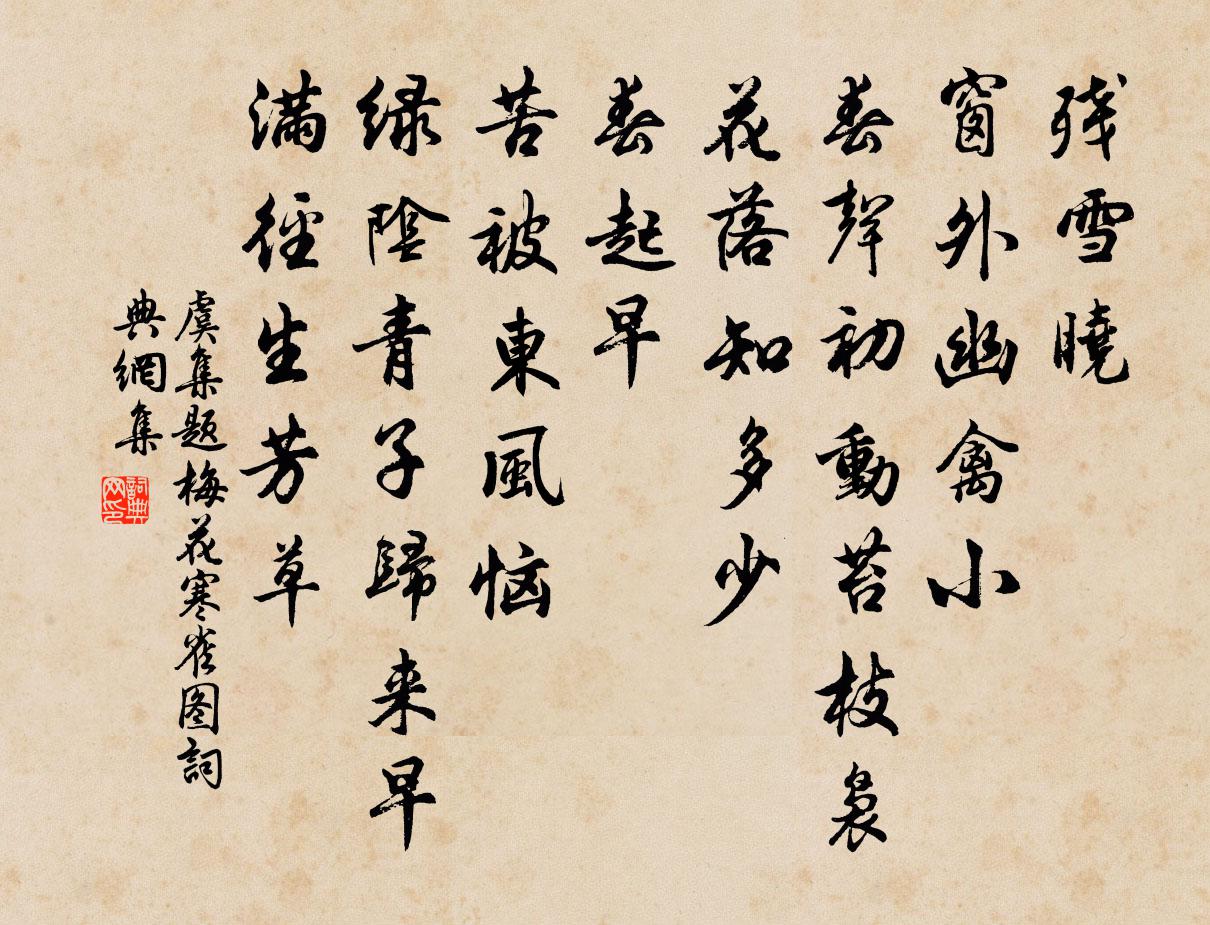 残雪曉
窗外幽禽小
春聲初動苔枝裊
花落知多少
春起早
苦被東風恼
緑陰青子歸来早
滿徑生芳草
虞集題梅花寒雀图詞
典網集
詞典
网印